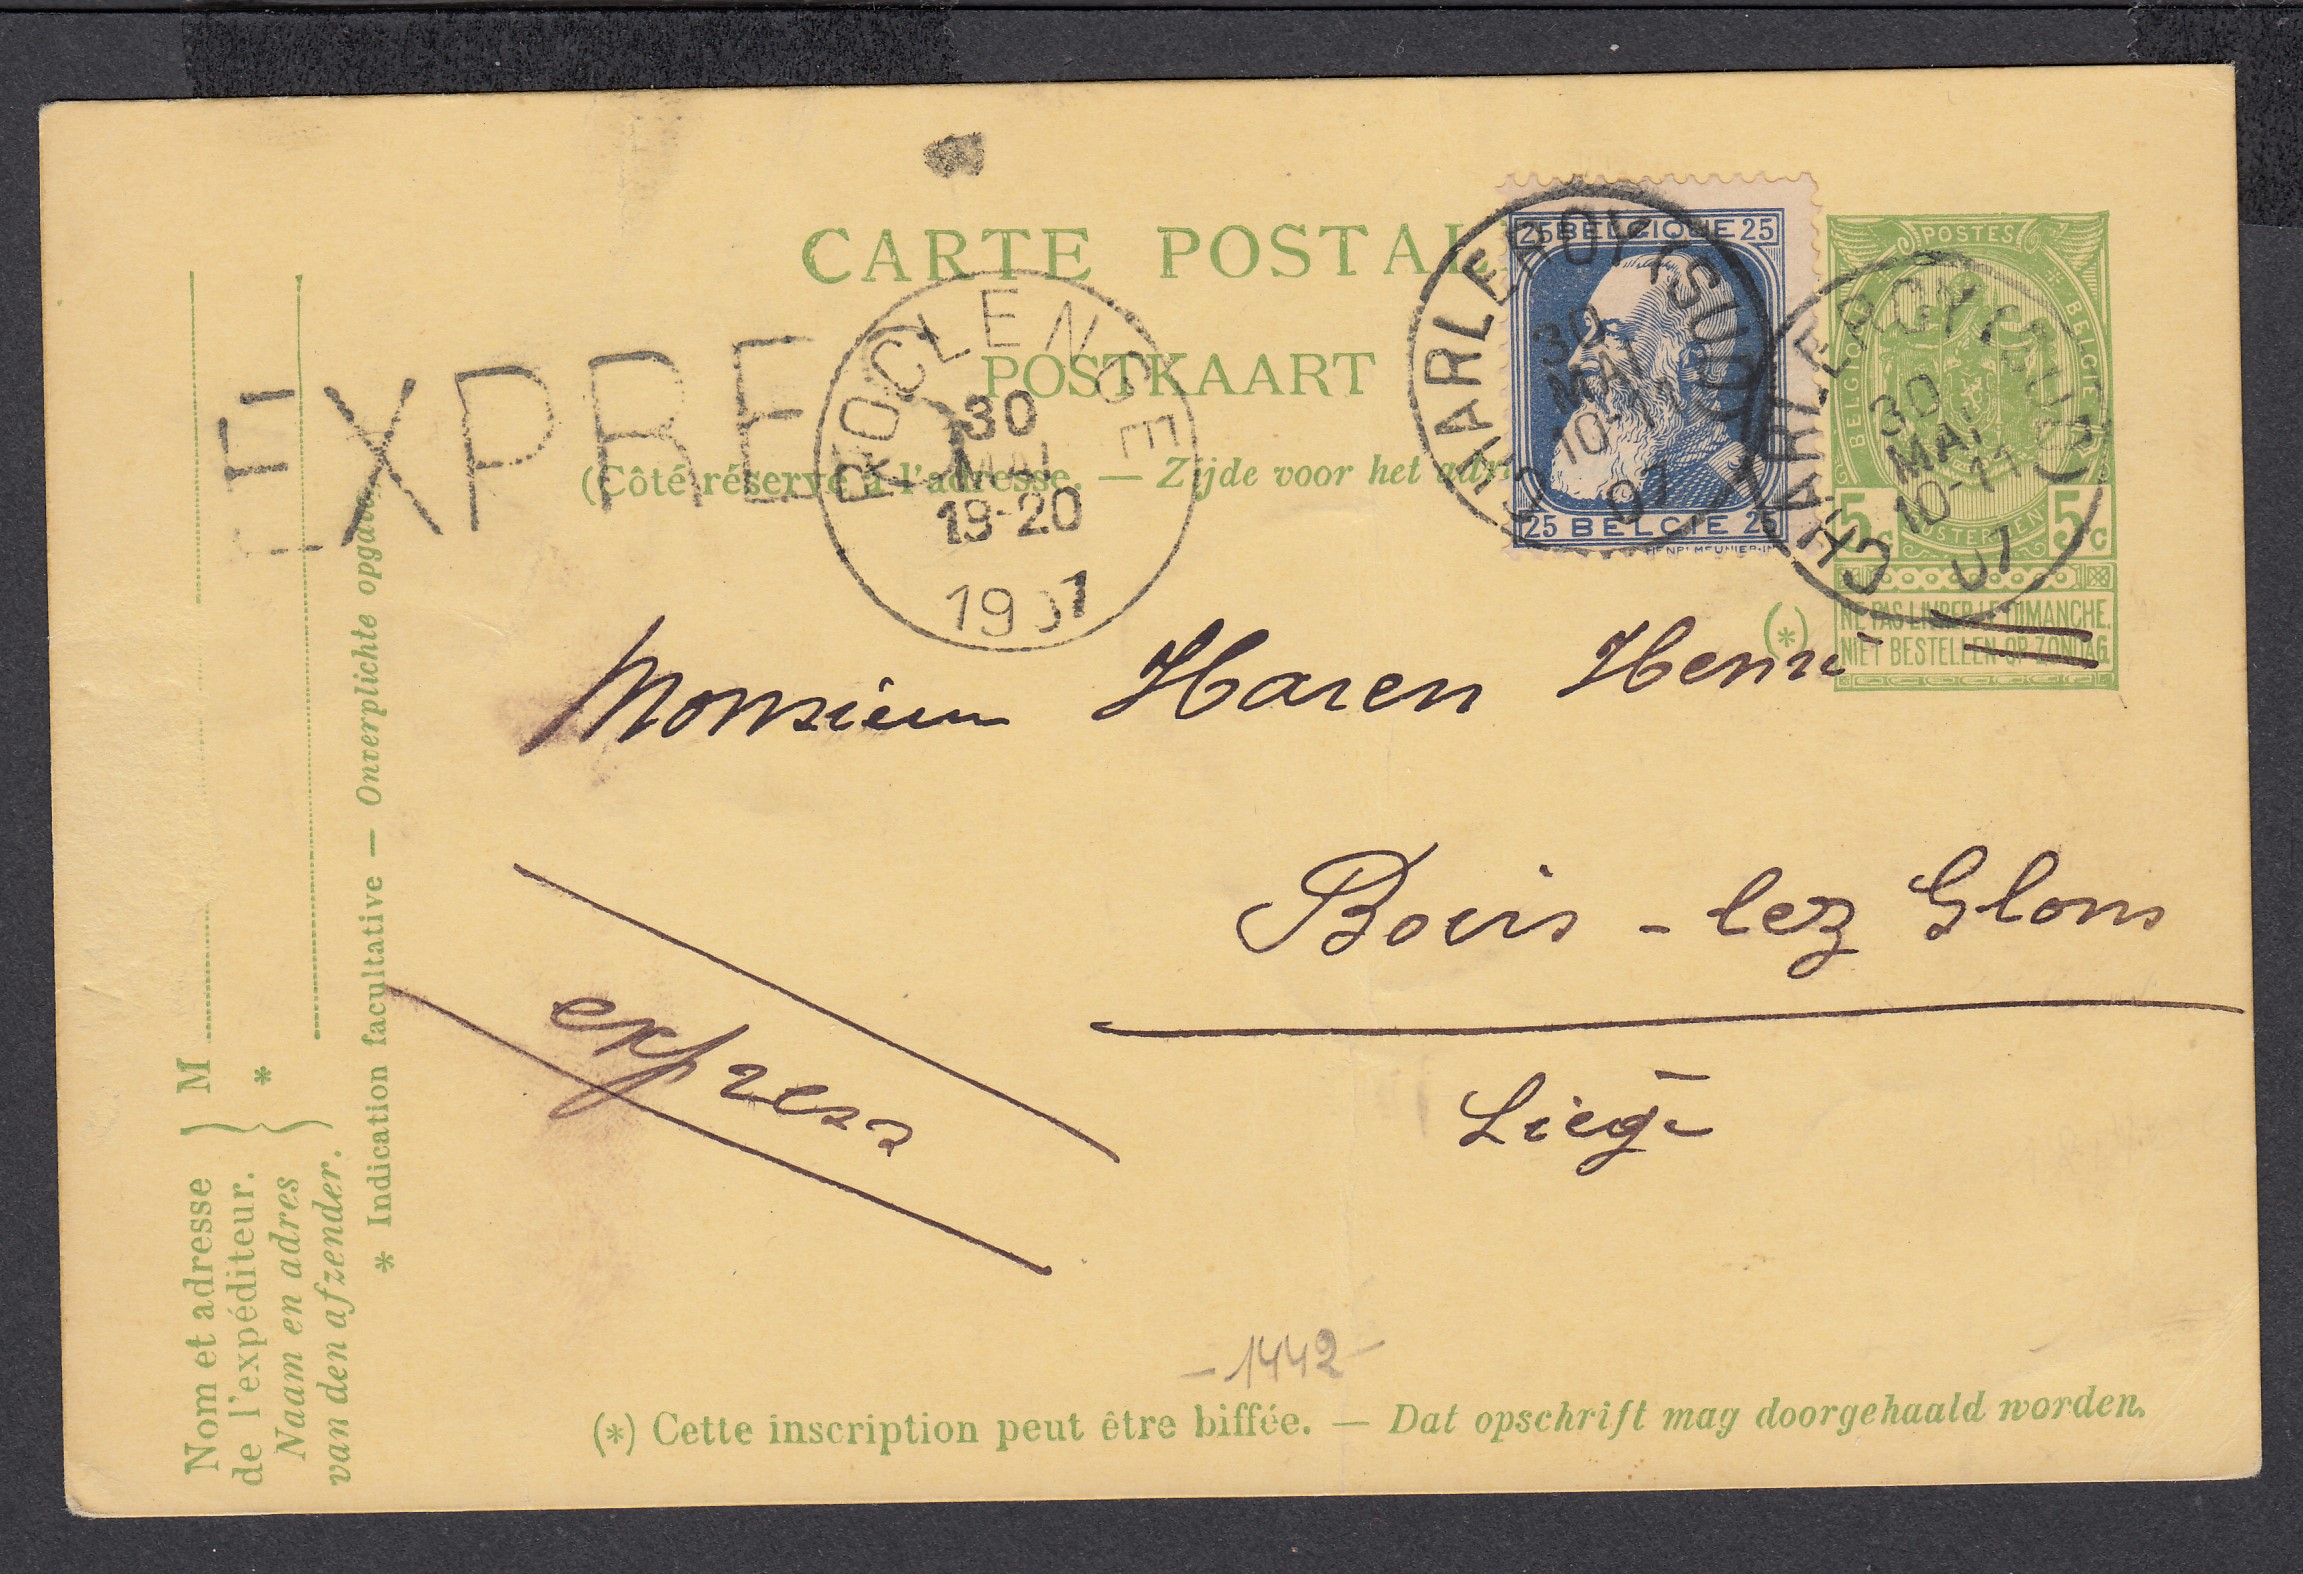 CARTE POSTAL
POSTKAART
(Côté réservé à l'adresse. — Zijde voor het adr
EXPRE
ROCLENGE
30
MAI
19-20
1907
25 BELGIQUE 25
25 BELGIE 25
HENRI MEUNIER-IN
CHARLEROY (SUD)
30
MAI
10-11
07
POSTES
BELGIQUE
BELGIE
POSTERIJEN
5c
5c
NE PAS LIVRER LE DIMANCHE.
NIET BESTELLEN OP ZONDAG.
CHARLEROY (SUD)
30
MAI
10-11
07
(*)
Monsieur Haren Henri
Boirs - lez Glons
Liège
express
-1442-
(*) Cette inscription peut être biffée. — Dat opschrift mag doorgehaald worden.
Nom et adresse
de l'expéditeur.
Naam en adres
van den afzender.
M
*
* Indication facultative — Onverplichte opgave.